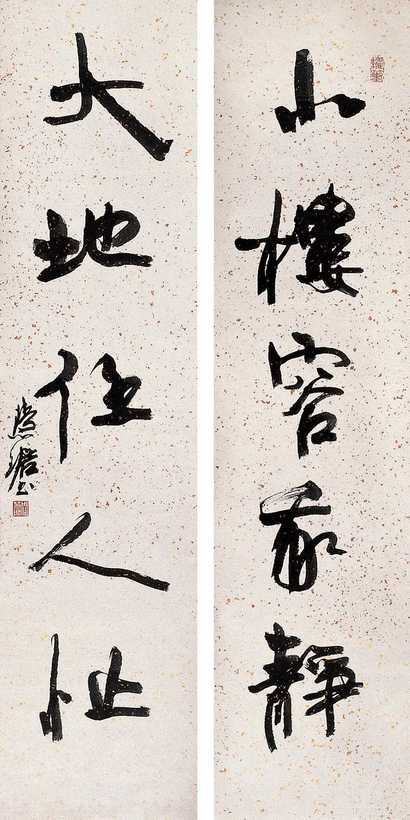 小樓容我靜
大地任人忙